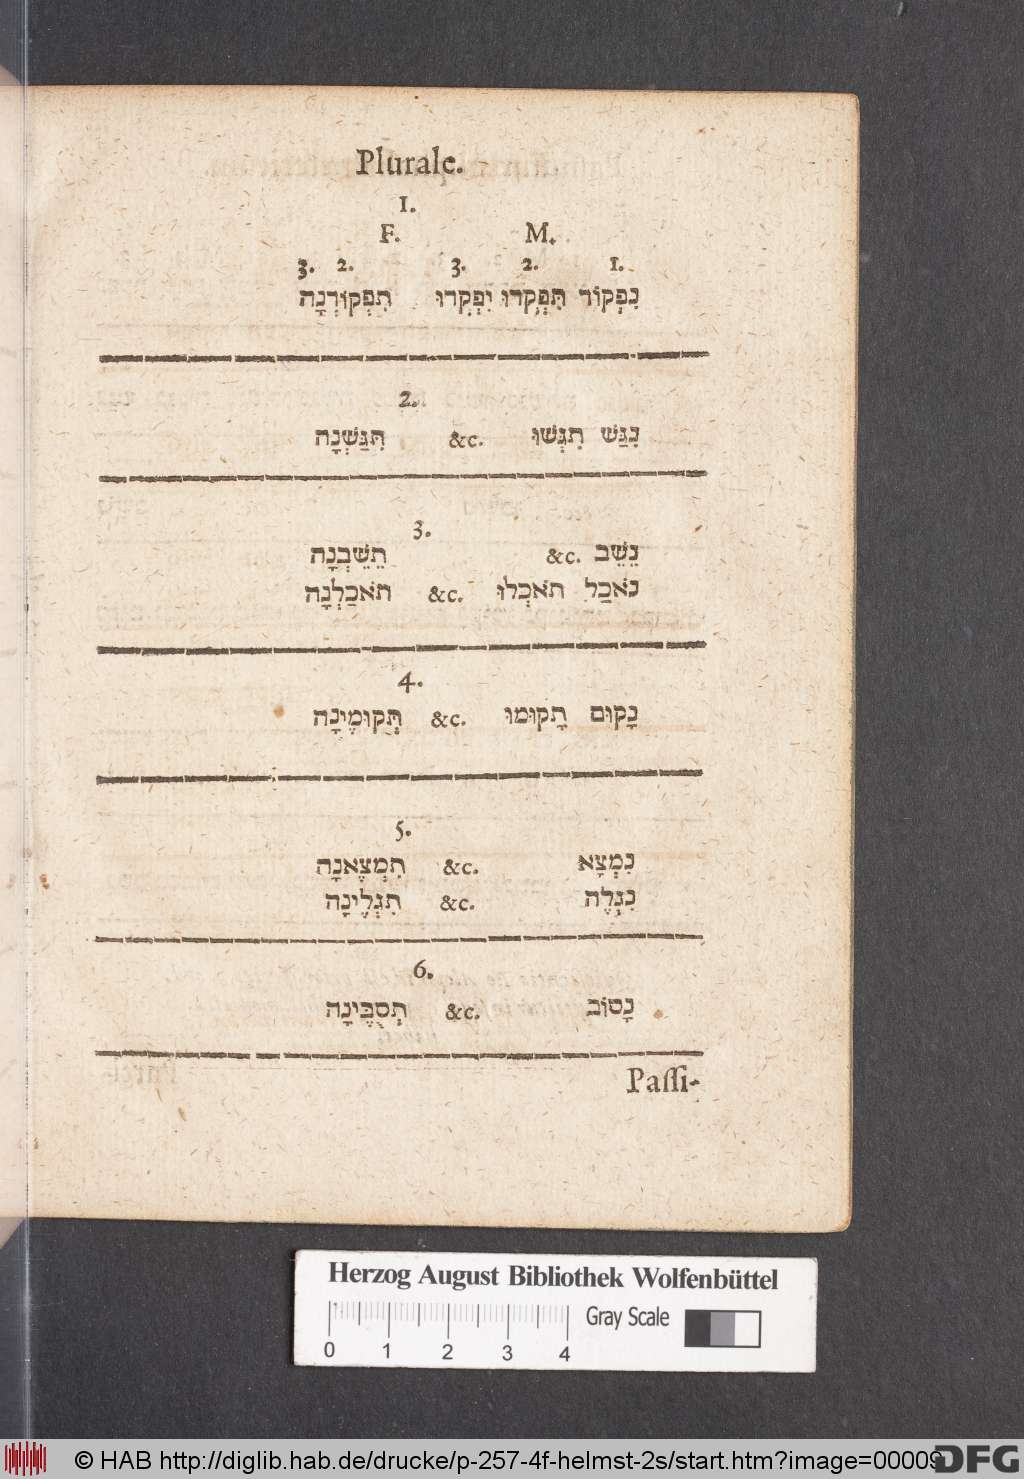 Plurale.
1.
F. M.
3. 2. 3. 2. 1.
נִפְקוֹד תִּפְקְדוּ יִפְקְדוּ תִּפְקוֹדְנָה
2.
נִגַּשׁ תִגְּשׁוּ &c. תִּגַּשְׁנָה
3.
נֵשֵׁב &c. תֵשֵׁבְנָה
נֹאכַל תֹאכְלוּ &c. תֹאכַלְנָה
4.
נָקוּם תָקוּמוּ &c. תְּקוּמֶינָה
5.
נִמְצָא &c. תִמְצֶאנָה
נִגְלֶה &c. תִגְלֶינָה
6.
נָסוֹב &c. תְסֻבֶּינָה
Paſſi-
Herzog August Bibliothek Wolfenbüttel
Gray Scale
0 1 2 3 4
© HAB http://diglib.hab.de/drucke/p-257-4f-helmst-2s/start.htm?image=00009
DFG